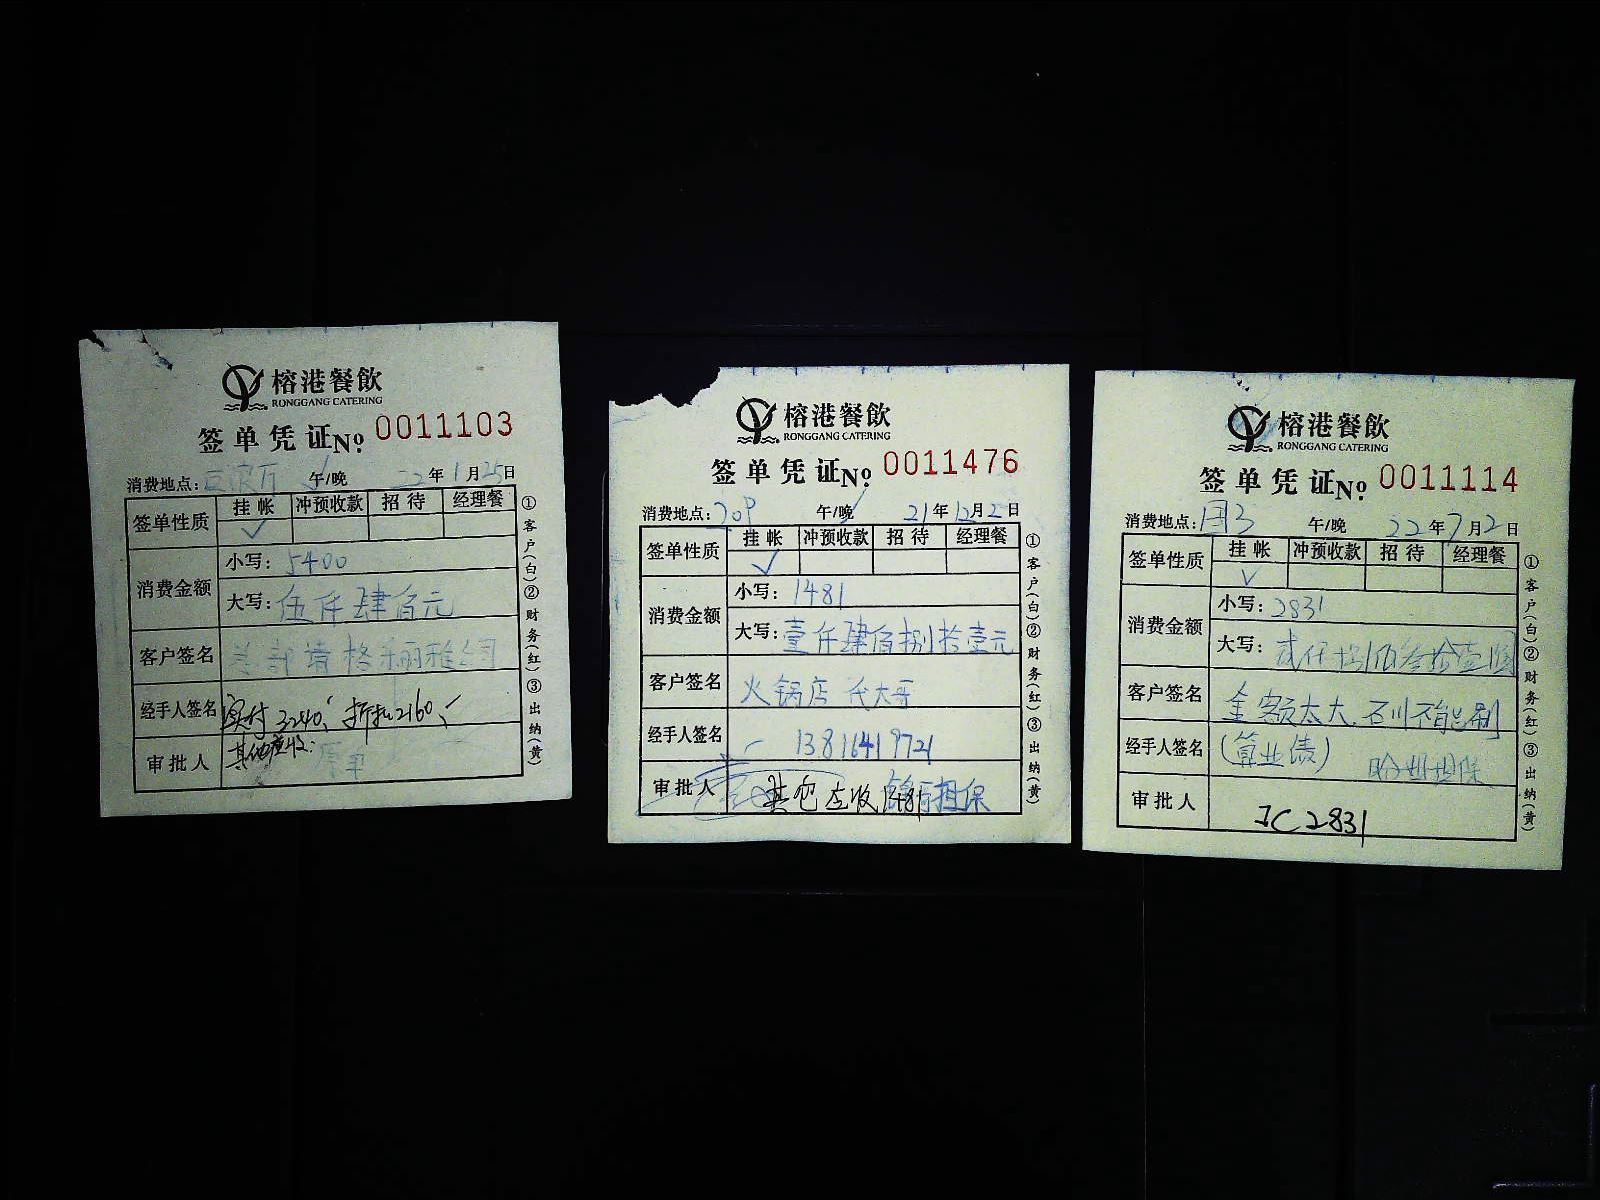 榕港餐飲
RONGGANG CATERING
签单凭证 No. 0011103
消费地点: 午/晚 22年1月25日
签单性质 挂帐 冲预收款 招待 经理餐
✓
消费金额 小写: 5400
大写: 伍仟肆佰元
客户签名 格丽雅公司
经手人签名 实付3240, 折扣2160,
审批人 其他应收:
①客户(白)②财务(红)③出纳(黄)
榕港餐飲
RONGGANG CATERING
签单凭证 No. 0011476
消费地点: 午/晚 21年12月2日
签单性质 挂帐 冲预收款 招待 经理餐
✓
消费金额 小写: 1481
大写: 壹仟肆佰捌拾壹元
客户签名 火锅店 代大哥
经手人签名 13816419721
审批人 其它应收1481 担保
①客户(白)②财务(红)③出纳(黄)
榕港餐飲
RONGGANG CATERING
签单凭证 No. 0011114
消费地点: 午/晚 22年7月2日
签单性质 挂帐 冲预收款 招待 经理餐
✓
消费金额 小写: 2831
大写: 贰仟捌佰叁拾壹
客户签名 金额太大,石川不能刷
经手人签名 担保
审批人 JC 2831
①客户(白)②财务(红)③出纳(黄)